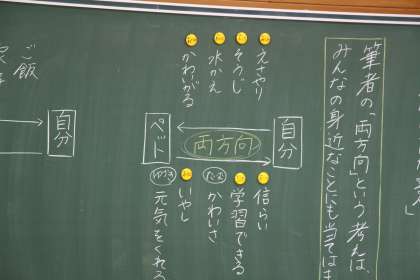 筆者の「両方向」という考えは、
みんなの身近なことにも当てはま
自分
両方向
ペット
えさやり
そうじ
水かえ
かわいがる
信らい
学習できる
かわいさ
いやし
元気をくれる
自分
ご飯